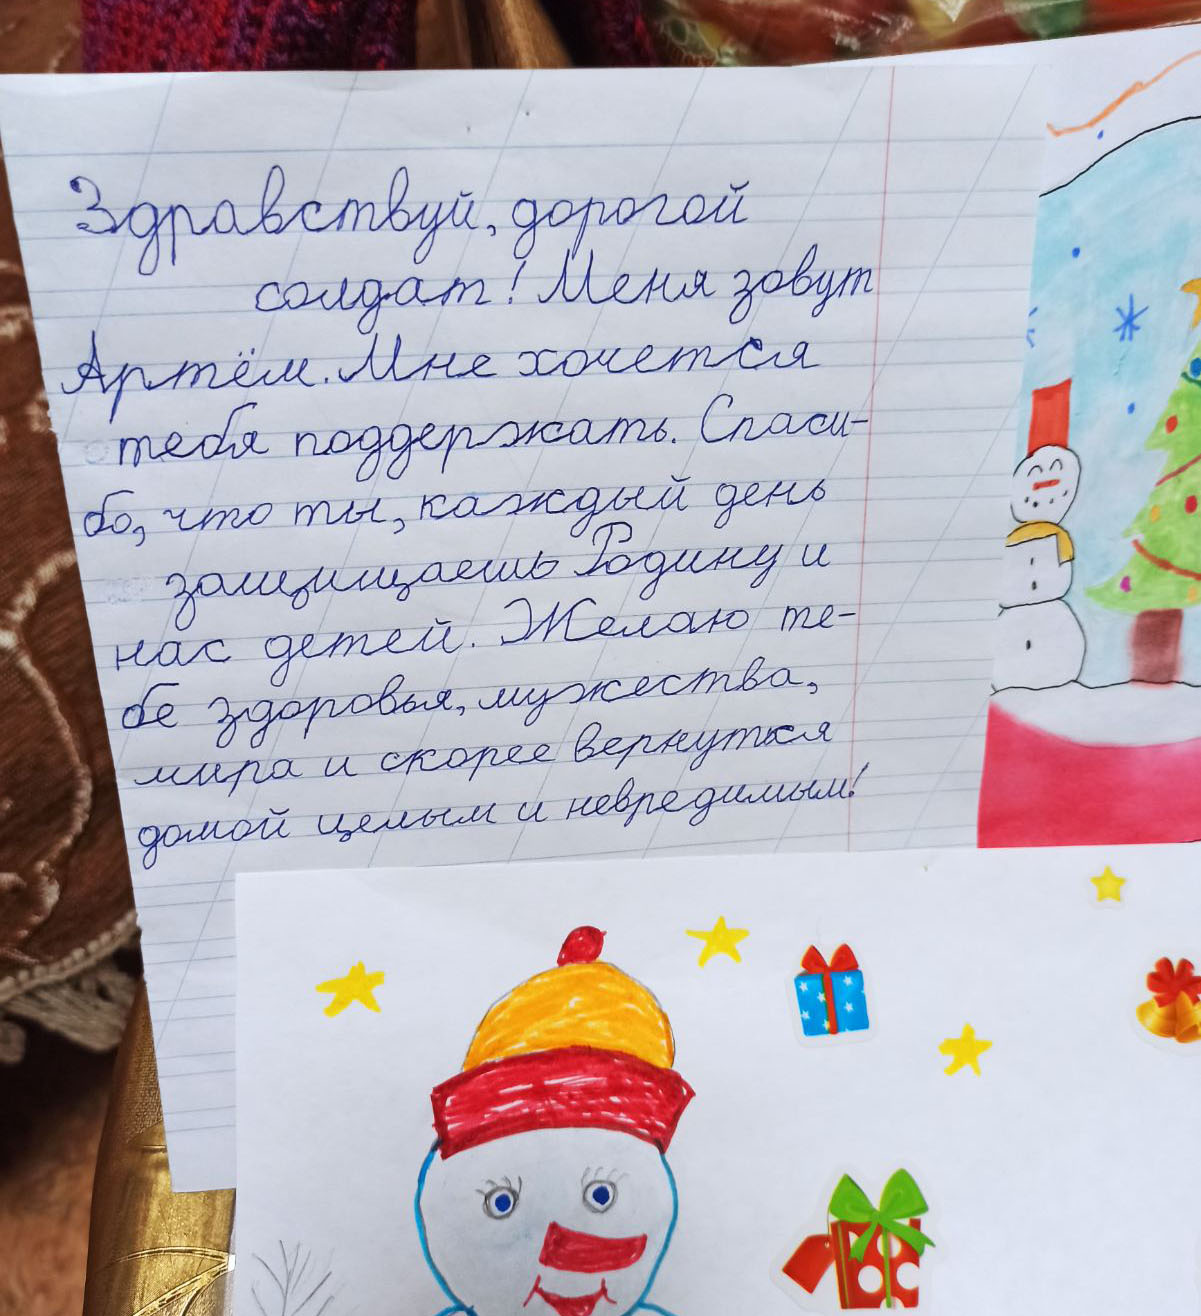 Здравствуй, дорогой
солдат! Меня зовут
Артём. Мне хочется
тебя поддержать. Спаси-
бо, что ты, каждый день
защищаешь Родину и
нас детей. Желаю те-
бе здоровья, мужества,
мира и скорее вернуться
домой целым и невредимым!